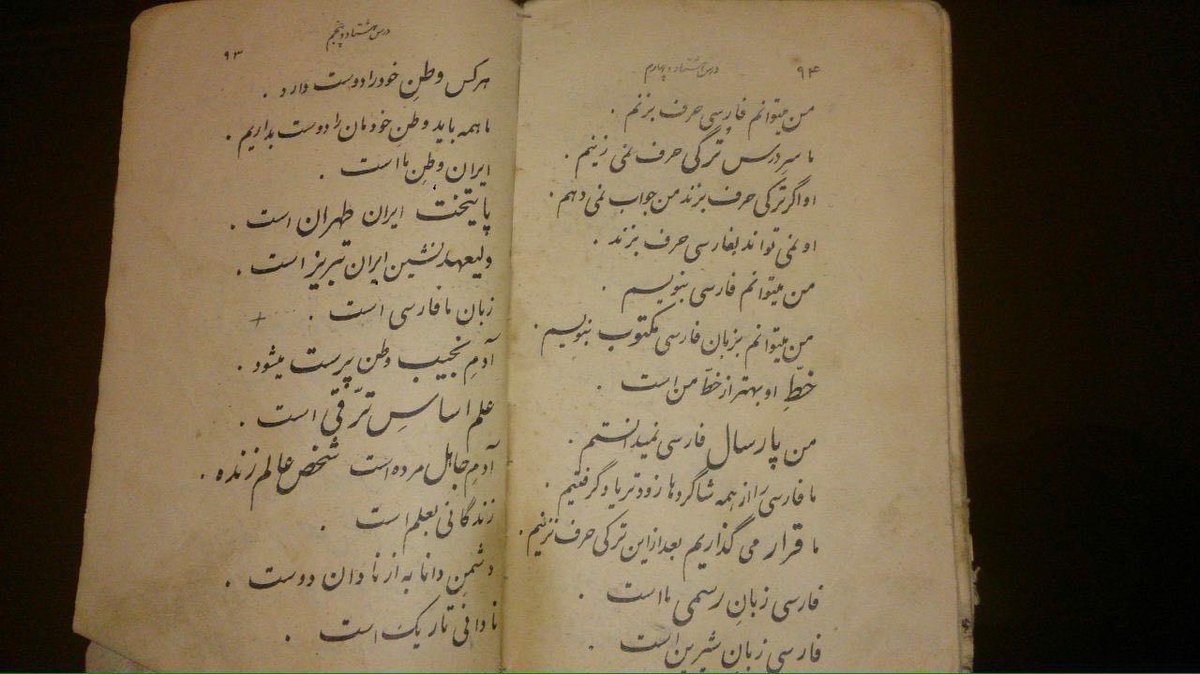 ۹۴ درس هشتاد و چهارم
من میتوانم فارسی حرف بزنم .
ما سرِ درس ترکی حرف نمی زنیم .
او اگر ترکی حرف بزند من جواب نمی دهم .
او نمی تواند بفارسی حرف بزند .
من میتوانم فارسی بنویسم .
من میتوانم بزبان فارسی مکتوب بنویسم .
خطِّ او بهتر از خطّ من است .
من پارسال فارسی نمیدانستم .
ما فارسی را از همه شاگردها زودتر یاد گرفتیم .
ما قرار می گذاریم بعد از این ترکی حرف نزنیم .
فارسی زبانِ رسمی ما است .
فارسی زبانِ شیرین است .
درس هشتاد و پنجم ۹۳
هر کس وطنِ خود را دوست دارد .
ما همه باید وطنِ خودمان را دوست بداریم .
ایران وطنِ ما است .
پایتخت ایران طهران است .
ولیعهد نشین ایران تبریز است .
زبان ما فارسی است .
آدمِ نجیب وطن پرست میشود .
علم اساسِ ترقّی است .
آدمِ جاهل مرده است شخص عالم زنده .
زندگانی بعلم است .
دشمنِ دانا به از نادان دوست .
نادانی تاریک است .